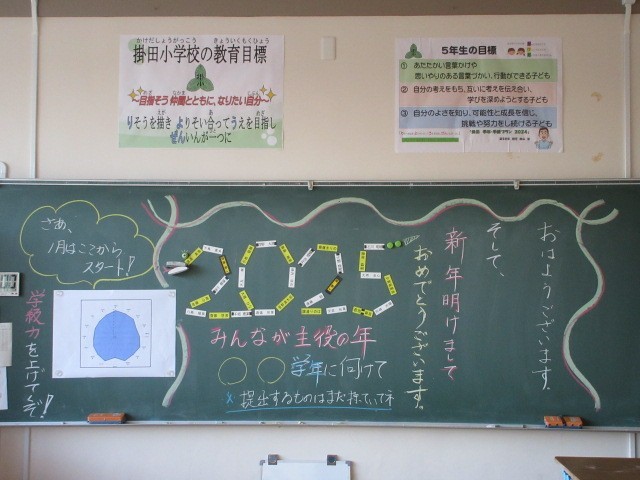 掛田小学校の教育目標
～目指そう 仲間とともに、なりたい自分～
りそうを描き よりそい合ってうえを目指し
ぜんいんが一つに
5年生の目標
① あたたかい言葉かけや
思いやりのある言葉づかい、行動ができる子ども
② 自分の考えをもち、互いに考えを伝え合い、
学びを深めようとする子ども
③ 自分のよさを知り、可能性と成長を信じ、
挑戦や努力をし続ける子ども
おはようございます。
そして、
新年明けまして
おめでとうございます。
2025
みんなが主役の年
○○学年に向けて
※ 提出するものはまだ持っていてネ
さあ、
1月はここから
スタート!
学校力を上げてくぞ!